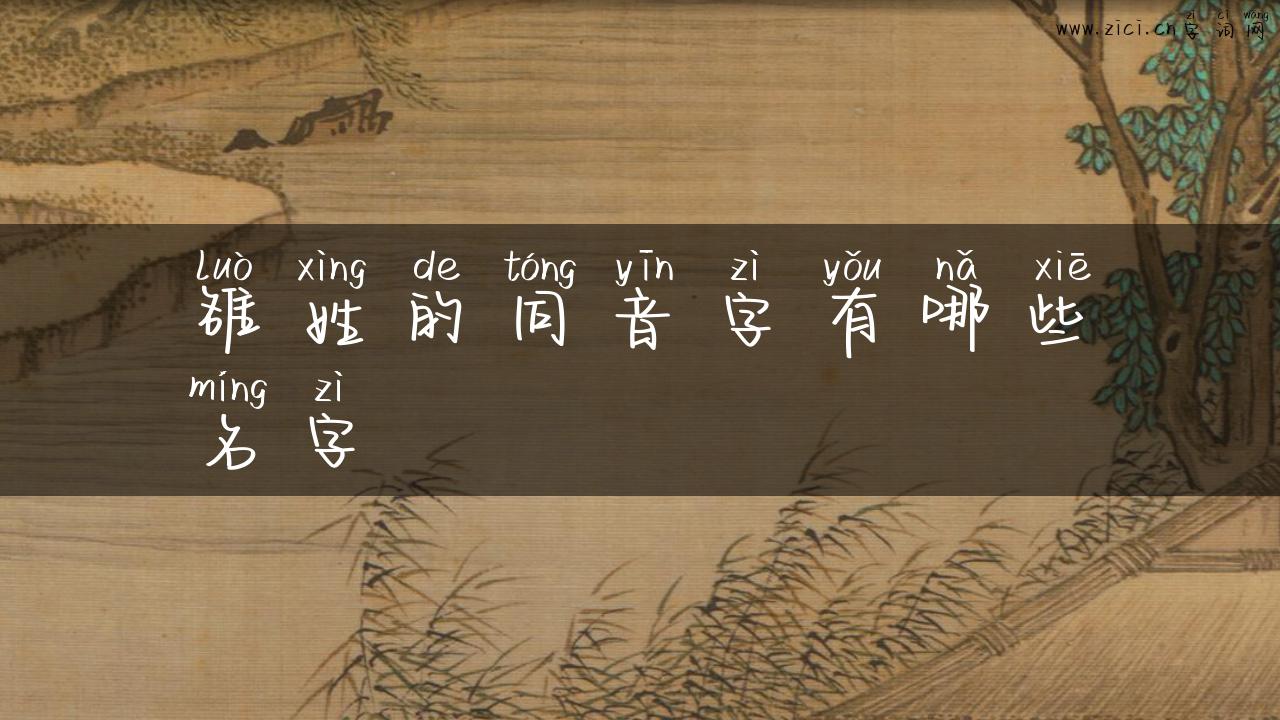 zì cí wǎng
www.zici.cn字词网
luò xìng de tóng yīn zì yǒu nǎ xiē
雒姓的同音字有哪些
míng zì
名字